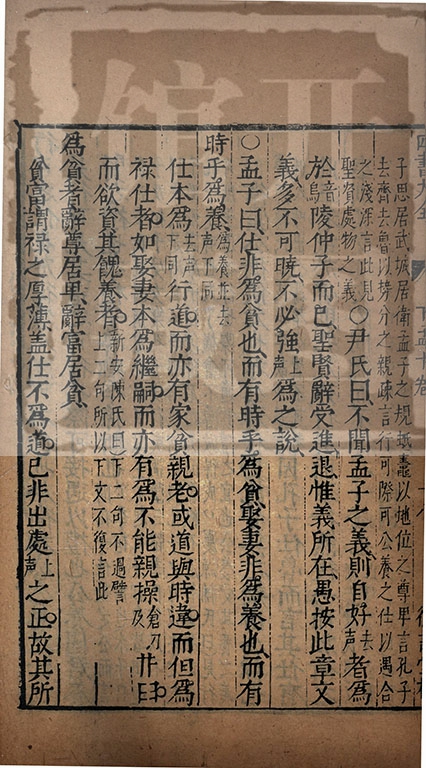 子思居武城居衛孟子之視蚳鼃以地位之尊卑言孔子
去齊去魯以勢分之親疎言行可際可公養之仕以遇合
之淺深言此見
聖賢處物之義
○尹氏曰不聞孟子之義則自好去聲者為
於音烏陵仲子而已聖賢辭受進退惟義所在愚按此章文
義多不可曉不必強上聲為之說
○孟子曰仕非為貧也而有時乎為貧娶妻非為養也而有
時乎為養為養並去聲下同
仕本為去聲下同行道而亦有家貧親老或道與時違而但為
祿仕者如娶妻本為繼嗣而亦有為不能親操倉刀反井臼
而欲資其餽養者新安陳氏曰下二句不過譬上二句所以下文不復言此
為貧者辭尊居卑辭富居貧
貧富謂祿之厚薄盖仕不為道已非出處上聲之正故其所